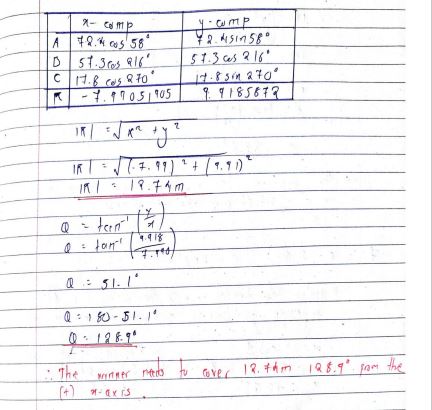 x-comp y-comp
A 72.4 cos 58° 72.4 sin 58°
B 57.3 cos 216° 57.3 cos 216°
C 17.8 cos 270° 17.8 sin 270°
R -7.99051905 9.9185672
|R| = √x² + y²
|R| = √(-7.99)² + (9.91)²
|R| = 12.74m
θ = tan⁻¹ (y/x)
θ = tan⁻¹ (9.918/7.990)
θ = 51.1°
θ = 180 - 51.1°
θ = 128.9°
∴ The winner needs to cover 12.74m 128.9° from the
(+) x-axis.